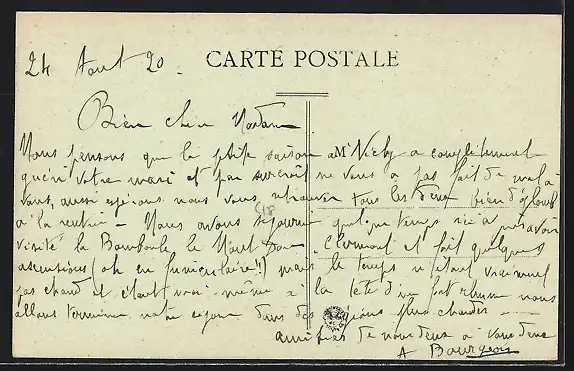 24 Aout 20.
CARTE POSTALE
Bien chère Madame
Nous pensons que la petite saison à Vichy a complètement
guéri votre mari et par surcroît ne vous a pas fait de mal à
vous, aussi espérons nous vous retrouver tous les deux bien
à la rentrée - Nous avons séjourné quelque temps ici après avoir
visité la Bourboule le Mont Dore, Clermont et fait quelques
ascensions (oh en funiculaire!!) mais le temps n'était vraiment
pas chaud et c'était vrai même à la tête d'un fort rhume nous
allons terminer notre séjour dans des régions plus chaudes -
amitiés de nous deux à vous deux
A Bourgeois